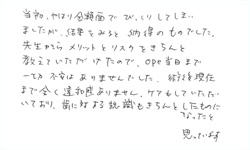 当初、やはり金額面でびっくりしてしまい
ましたが、結果をみると納得のものでした。
先生からメリットとリスクをきちんと
教えていただけたので、OPE当日まで
一切不安はありませんでした。術後現在
まで全く違和感ありません。ケアもしていただ
いており、歯に対する認識もきちんとしたものに
なったと
思っています